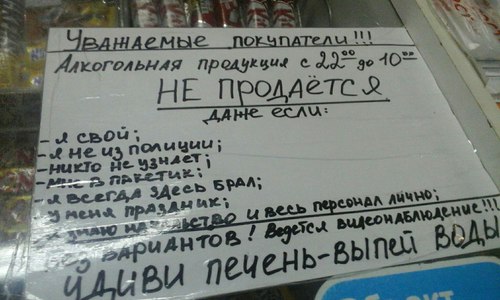 Уважаемые покупатели!!!
Алкогольная продукция с 22⁰⁰ до 10⁰⁰
НЕ ПРОДАЁТСЯ
даже если:
- я свой;
- я не из полиции;
- никто не узнает;
- мне в пакетик;
- я всегда здесь брал;
- у меня праздник;
- я знаю начальство и весь персонал лично;
Без вариантов! Ведется видеонаблюдение!!!
Удиви печень-выпей воды